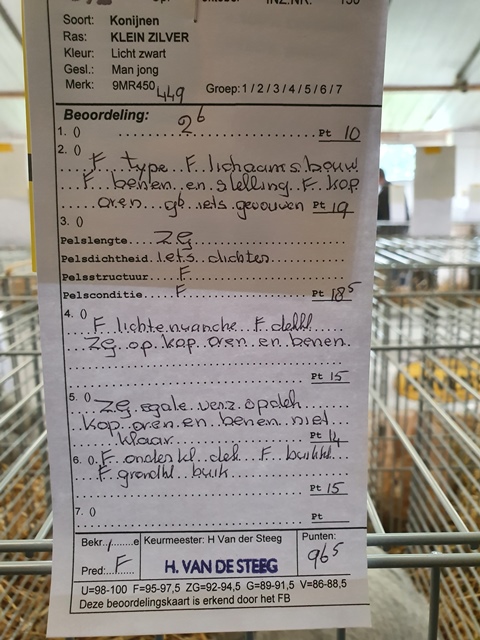 INZ.NR. 130
Soort: Konijnen
Ras: KLEIN ZILVER
Kleur: Licht zwart
Gesl.: Man jong
Merk: 9MR450 449 Groep: 1 / 2 / 3 / 4 / 5 / 6 / 7
Beoordeling:
1. () 2 6 Pt 10
2. ()
F type F lichaamsbouw
F benen en stelling F kop
oren gb iets gevouwen Pt 19
3. ()
Pelslengte ZG
Pelsdichtheid iets dichter
Pelsstructuur F
Pelsconditie F Pt 18 5
4. ()
F lichte nuanche F dekkl
ZG op kop oren en benen
Pt 15
5. ()
ZG egale verz op dek
kop oren en benen niet
klaar Pt 14
6. () F onderkl dek F buikkl
F grondkl buik
Pt 15
7. ()
Pt
Bekr./e Keurmeester: H Van der Steeg Punten:
Pred: F H. VAN DE STEEG 96 5
U=98-100 F=95-97,5 ZG=92-94,5 G=89-91,5 V=86-88,5
Deze beoordelingskaart is erkend door het FB